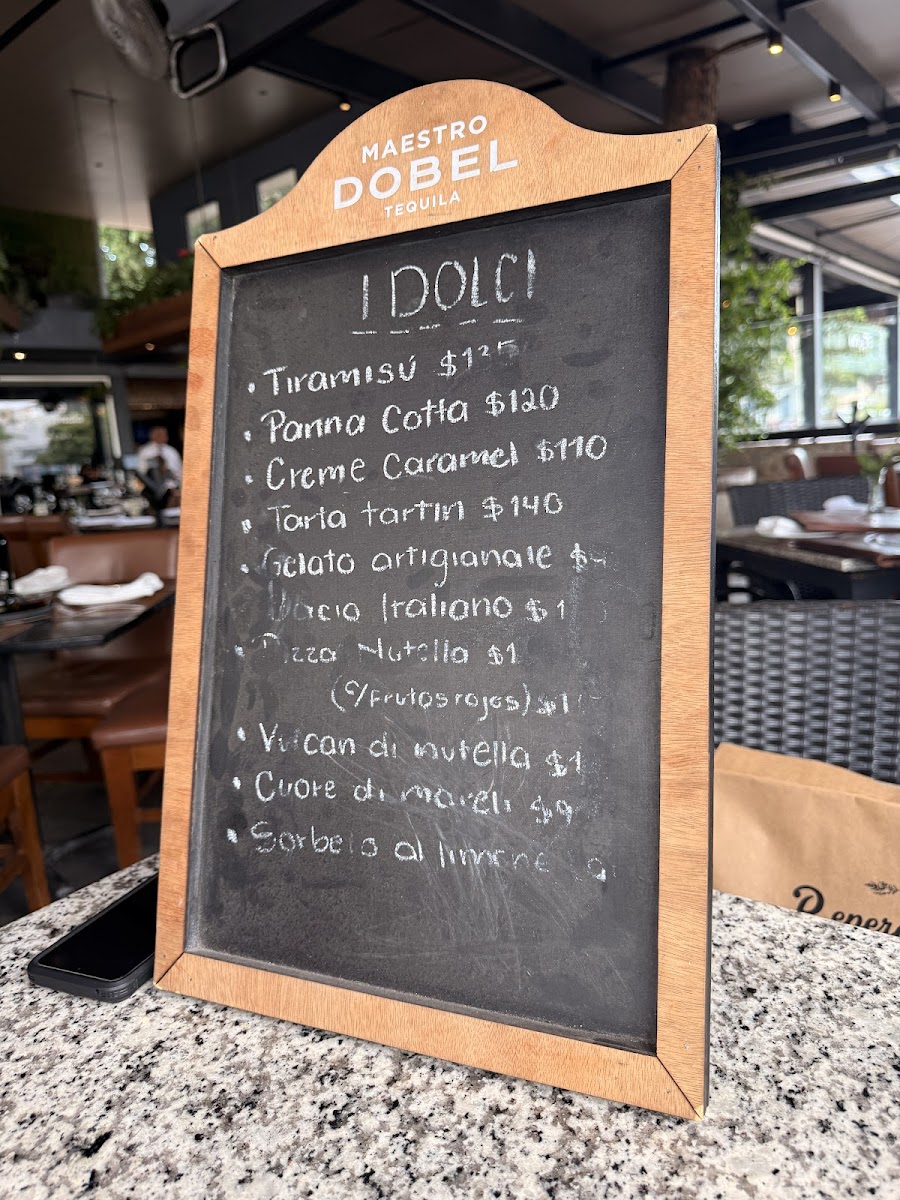 MAESTRO
DOBEL
TEQUILA
I DOLCI
• Tiramisú $125
• Panna Cotta $120
• Creme Caramel $110
• Tarta tartin $140
• Gelato artigianale $
Bacio Italiano $1
• Pizza Nutella $1
(c/frutos rojos) $1
• Vulcan di nutella $1
• Cuore di $9
• Sorbeto al limone